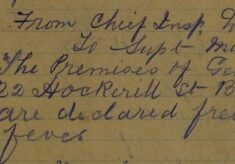 From Chief Insp
To Supt
The Premises of
22 Hockerill St B
are declared free
fever